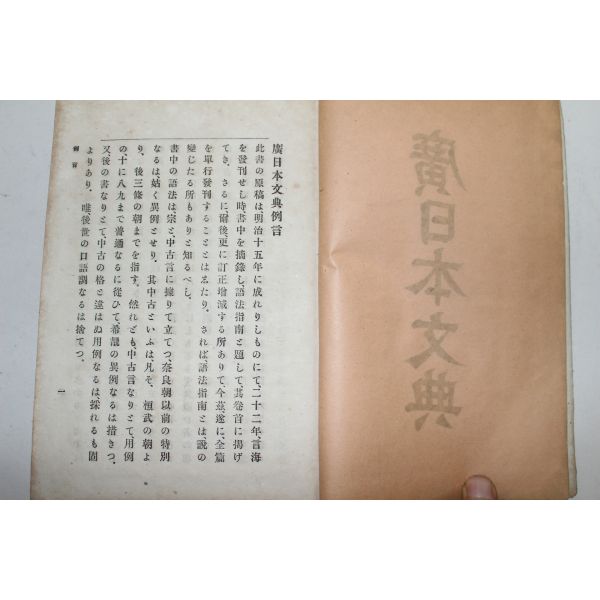 廣日本文典
廣日本文典例言
此書の原稿は、明治十五年に成れりしものにて、二十二年、言海
を發刊せし時、書中を摘錄し、語法指南と題して、其卷首に揭げ
てき。さるに、爾後、更に訂正增減する所ありて、今茲、遂に、全篇
を單行發刊することとはゑたり。されば、語法指南とは、說の
變じたる所もありと知るべし。
書中の語法は、宗と、中古言に據りて立てつ、奈良朝以前の特別
なるは、姑く異例とせり。其中古といふは、凡そ、桓武の朝よ
り、後三條の朝までを指す。然れども、中古言なりとて、用例
の、十に八九まで普通なるに從ひて、希覯の異例なるは措きつ、
又、後の書なりとて、中古の格と違はぬ用例なるは、採れるも固
よりあり。唯、後世の口語調なるは捨てつ。
例言
一